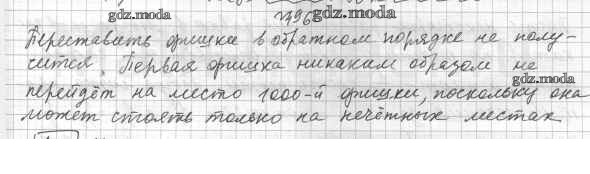 gdz.moda
№796 gdz.moda
Переставить фишки в обратном порядке не полу-
чится. Первая фишка никаким образом не
gdz.moda
перейдёт на место 1000-й фишки, поскольку она
может стоять только на нечётных местах